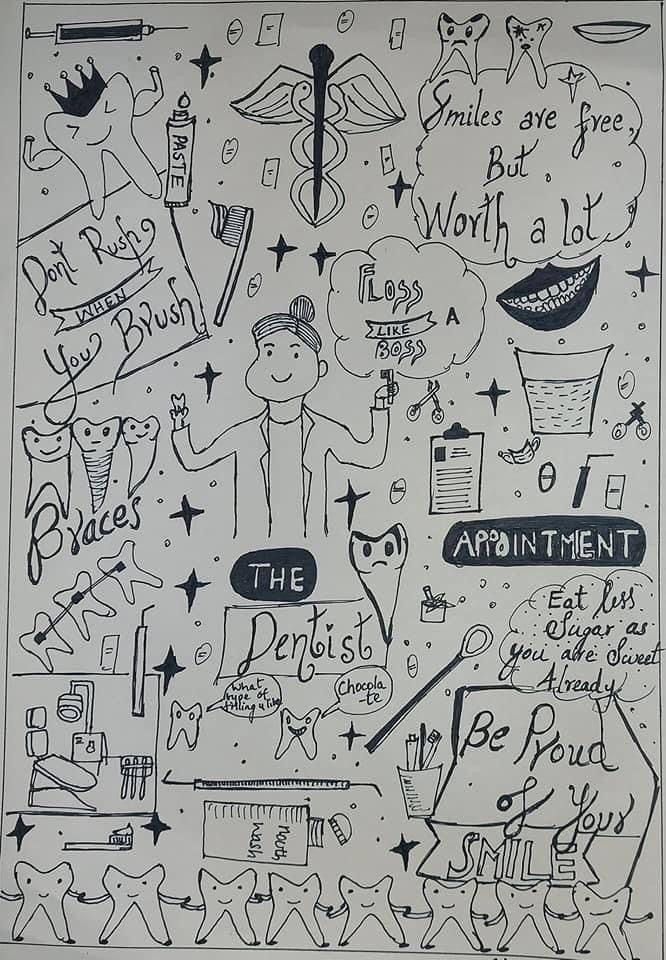 PASTE
Smiles are free,
But
Worth a lot
Dont Rush
WHEN
You Brush
FLOSS
LIKE A
BOSS
Braces
APPOINTMENT
THE
Dentist
Eat less
Sugar as
you are Sweet
Already
What
type of
filling u like
Chocola
-te
Be Proud
of Your
SMILE
Mouth
Wash